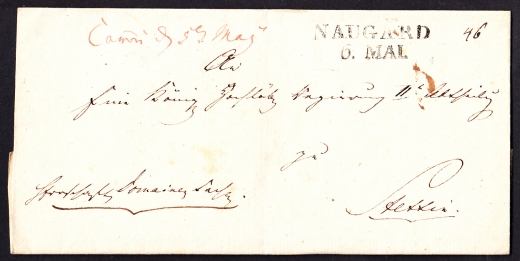 NAUGARD
6. MAI.
46
An
Eine König Hochlöbl Regierung II Abtheilung
zu
Stettin.
Herrschaftl Domainen Sache.